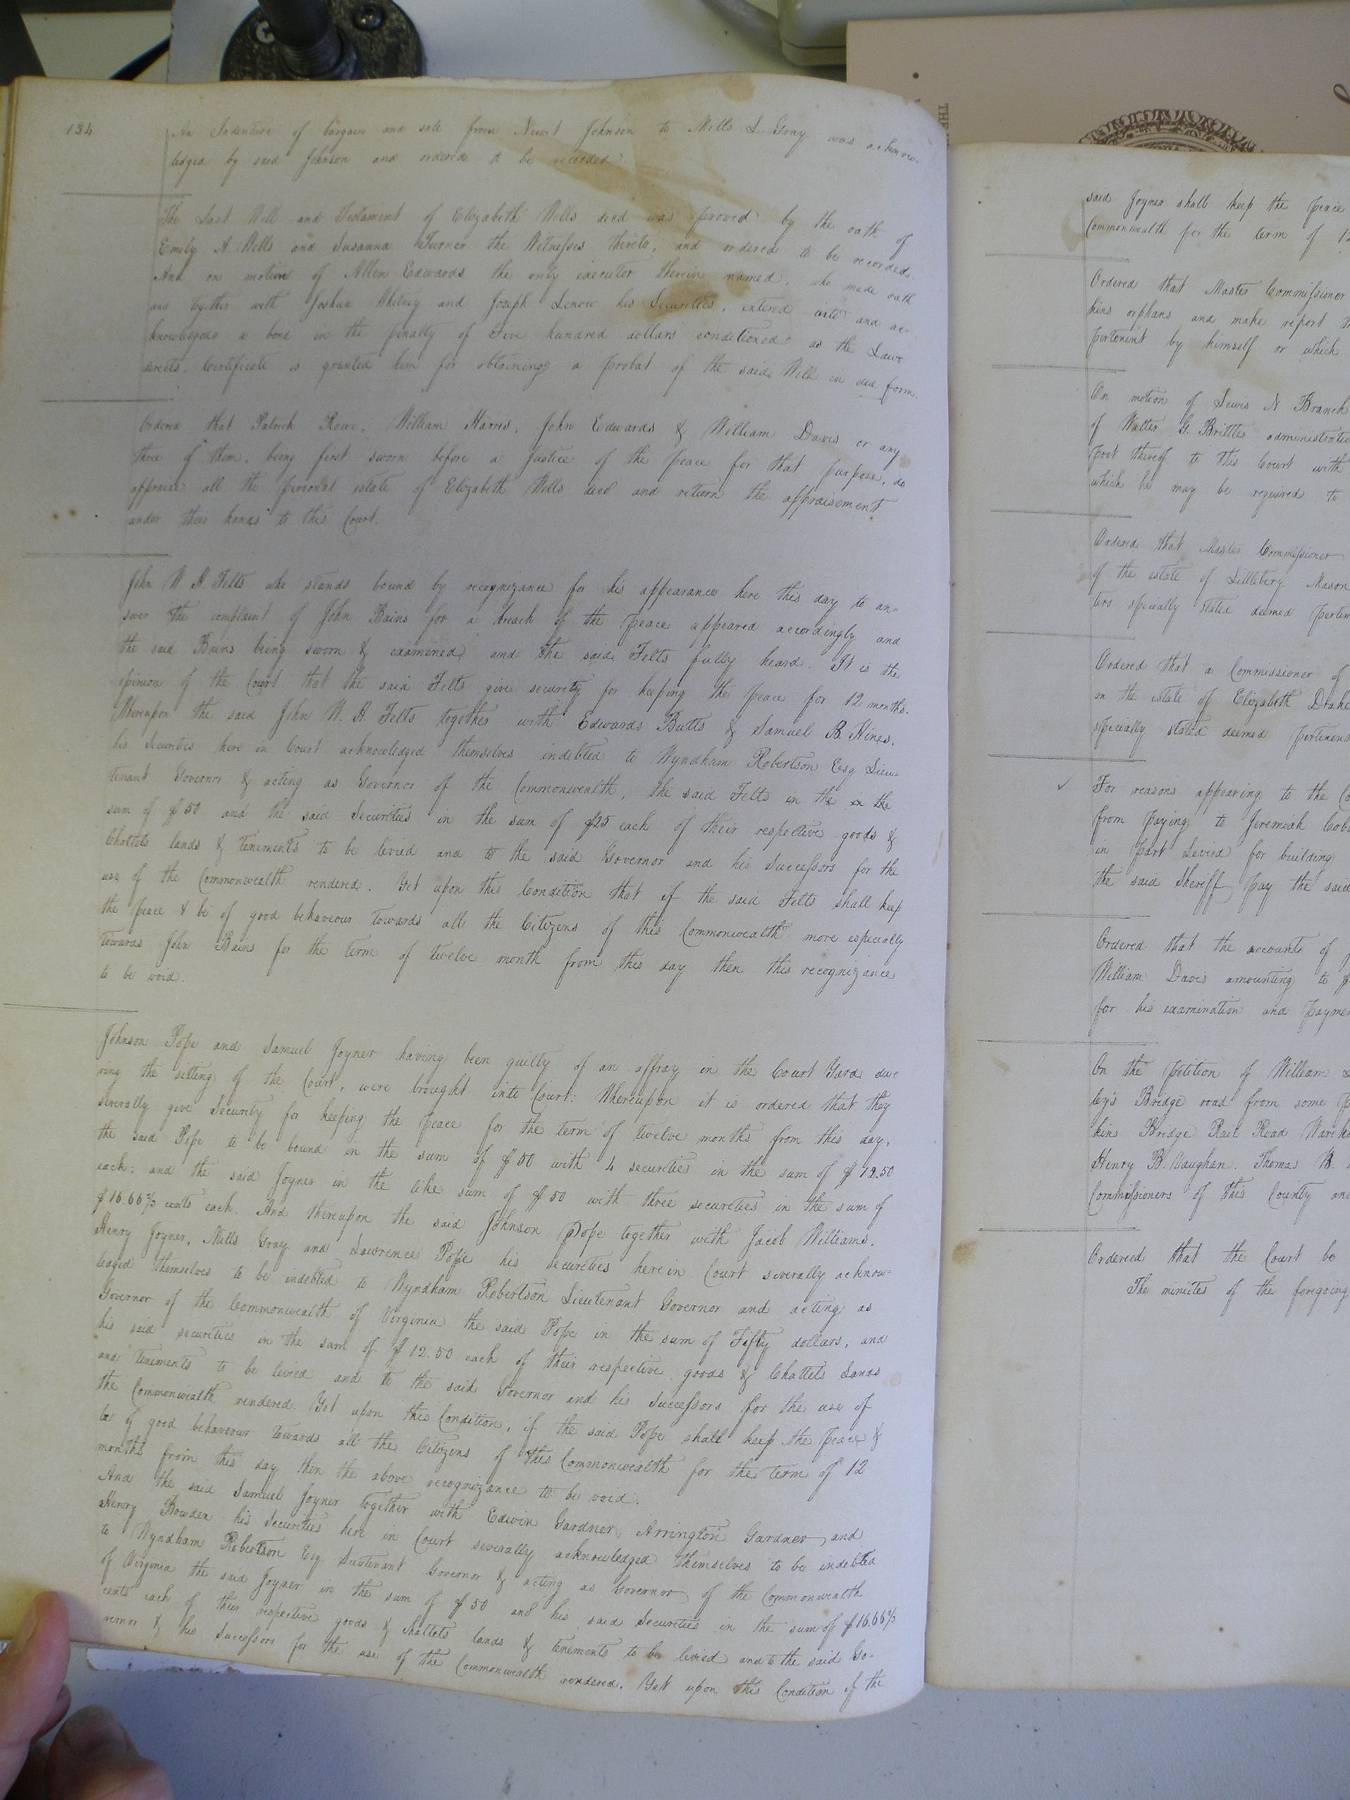 134
An Indenture of bargain and sale from Newit Johnson to Mills L. Gray was acknow-
ledged by said Johnson and ordered to be recorded.
The Last Will and Testament of Elizabeth Wells decd was proved by the oath of
Emily A. Wells and Susanna Turner the Witnesses thereto, and ordered to be recorded.
And on motion of Allen Edwards the only executor therein named, who made oath
and together with Joshua and Joseph Lenow his Securities, entered into and ac-
knowledged a bond in the penalty of Five hundred dollars conditioned as the Law
directs. Certificate is granted him for obtaining a probat of the said Will in due form.
Ordered that Patrick Rowe, William Harris, John Edwards & William Davis or any
three of them, being first sworn before a justice of the peace for that purpose, do
appraise all the personal estate of Elizabeth Wells decd and return the appraisement
under their hands to this Court.
John W. A. Felts who stands bound by recognizance for his appearance here this day to an-
swer the complaint of John Bains for a breach of the peace appeared accordingly and
the said Bains being sworn & examined and the said Felts fully heard. It is the
opinion of the Court that the said Felts give security for keeping the peace for 12 months.
Whereupon the said John W. A. Felts together with Edwards Butts & Samuel B. Hines,
his Securities here in Court acknowledged themselves indebted to Wyndham Robertson Esq Lieu-
tenant Governor & acting as Governor of the Commonwealth, the said Felts in the in the
sum of $50 and the said Securities in the sum of $25 each of their respective goods &
Chattels lands & tenements to be levied and to the said Governor and his Successors for the
use of the Commonwealth rendered. Yet upon this Condition that if the said Felts shall keep
the peace & be of good behaviour towards all the Citizens of this Commonwealth more especially
towards John Bains for the term of twelve month from this day then this recognizance
to be void.
Johnson Pope and Samuel Joyner having been guilty of an affray in the Court Yard du-
ring the setting of the Court, were brought into Court: Whereupon it is ordered that they
severally give Security for keeping the peace for the term of twelve months from this day,
the said Pope to be bound in the sum of $50 with 4 securities in the sum of $12.50
each: and the said Joyner in the like sum of $50 with three securities in the sum of
$16.66⅔ cents each. And thereupon the said Johnson Pope together with Jacob Williams,
Henry Joyner, Mills Gray and Lawrence Pope his securities here in Court severally acknow-
ledged themselves to be indebted to Wyndham Robertson Lieutenant Governor and acting as
Governor of the Commonwealth of Virginia the said Pope in the sum of Fifty dollars, and
his said securities in the sum of $12.50 each of their respective goods & Chattels Lands
and tenements to be levied and to the said Governor and his Successors for the use of
the Commonwealth rendered. Yet upon this Condition, if the said Pope shall keep the peace &
be of good behaviour towards all the Citizens of this Commonwealth for the term of 12
months from this day then the above recognizance to be void.
And the said Samuel Joyner together with Edwin Gardner, Arrington Gardner and
Henry Bowden his Securities here in Court severally acknowledged themselves to be indebted
to Wyndham Robertson Esq Lieutenant Governor & acting as Governor of the Commonwealth
of Virginia the said Joyner in the sum of $50 and his said Securities in the sum of $16.66⅔
cents each of their respective goods & chattels lands & tenements to be levied and to the said Go-
vernor & his Successors for the use of the Commonwealth rendered. Yet upon this Condition if the
said Joyner shall keep the peace
Commonwealth for the term of 12
Ordered that Master Commissioner
kins orphans and make report
pertinent by himself or which
On motion of Lewis N Branch
of Walter G. Brittle administrator
port thereof to this Court with
which he may be required to
Ordered that Master Commissioner
of the estate of Littlebery Mason
ters specially stated deemed pertinen
Ordered that a Commissioner of
on the estate of Elizabeth Drake
specially stated deemed pertinent
For reasons appearing to the Co
from paying to Jeremiah Cobb
in part Levied for building
the said Sheriff pay the said
Ordered that the accounts of
William Davis amounting to $
for his examination and payment
On the petition of William
ley's Bridge road from some p
kins Bridge Rail Road Wareho
Henry B. Vaughan, Thomas B.
Commissioners of this County and
Ordered that the Court be
The minutes of the foregoing
THE